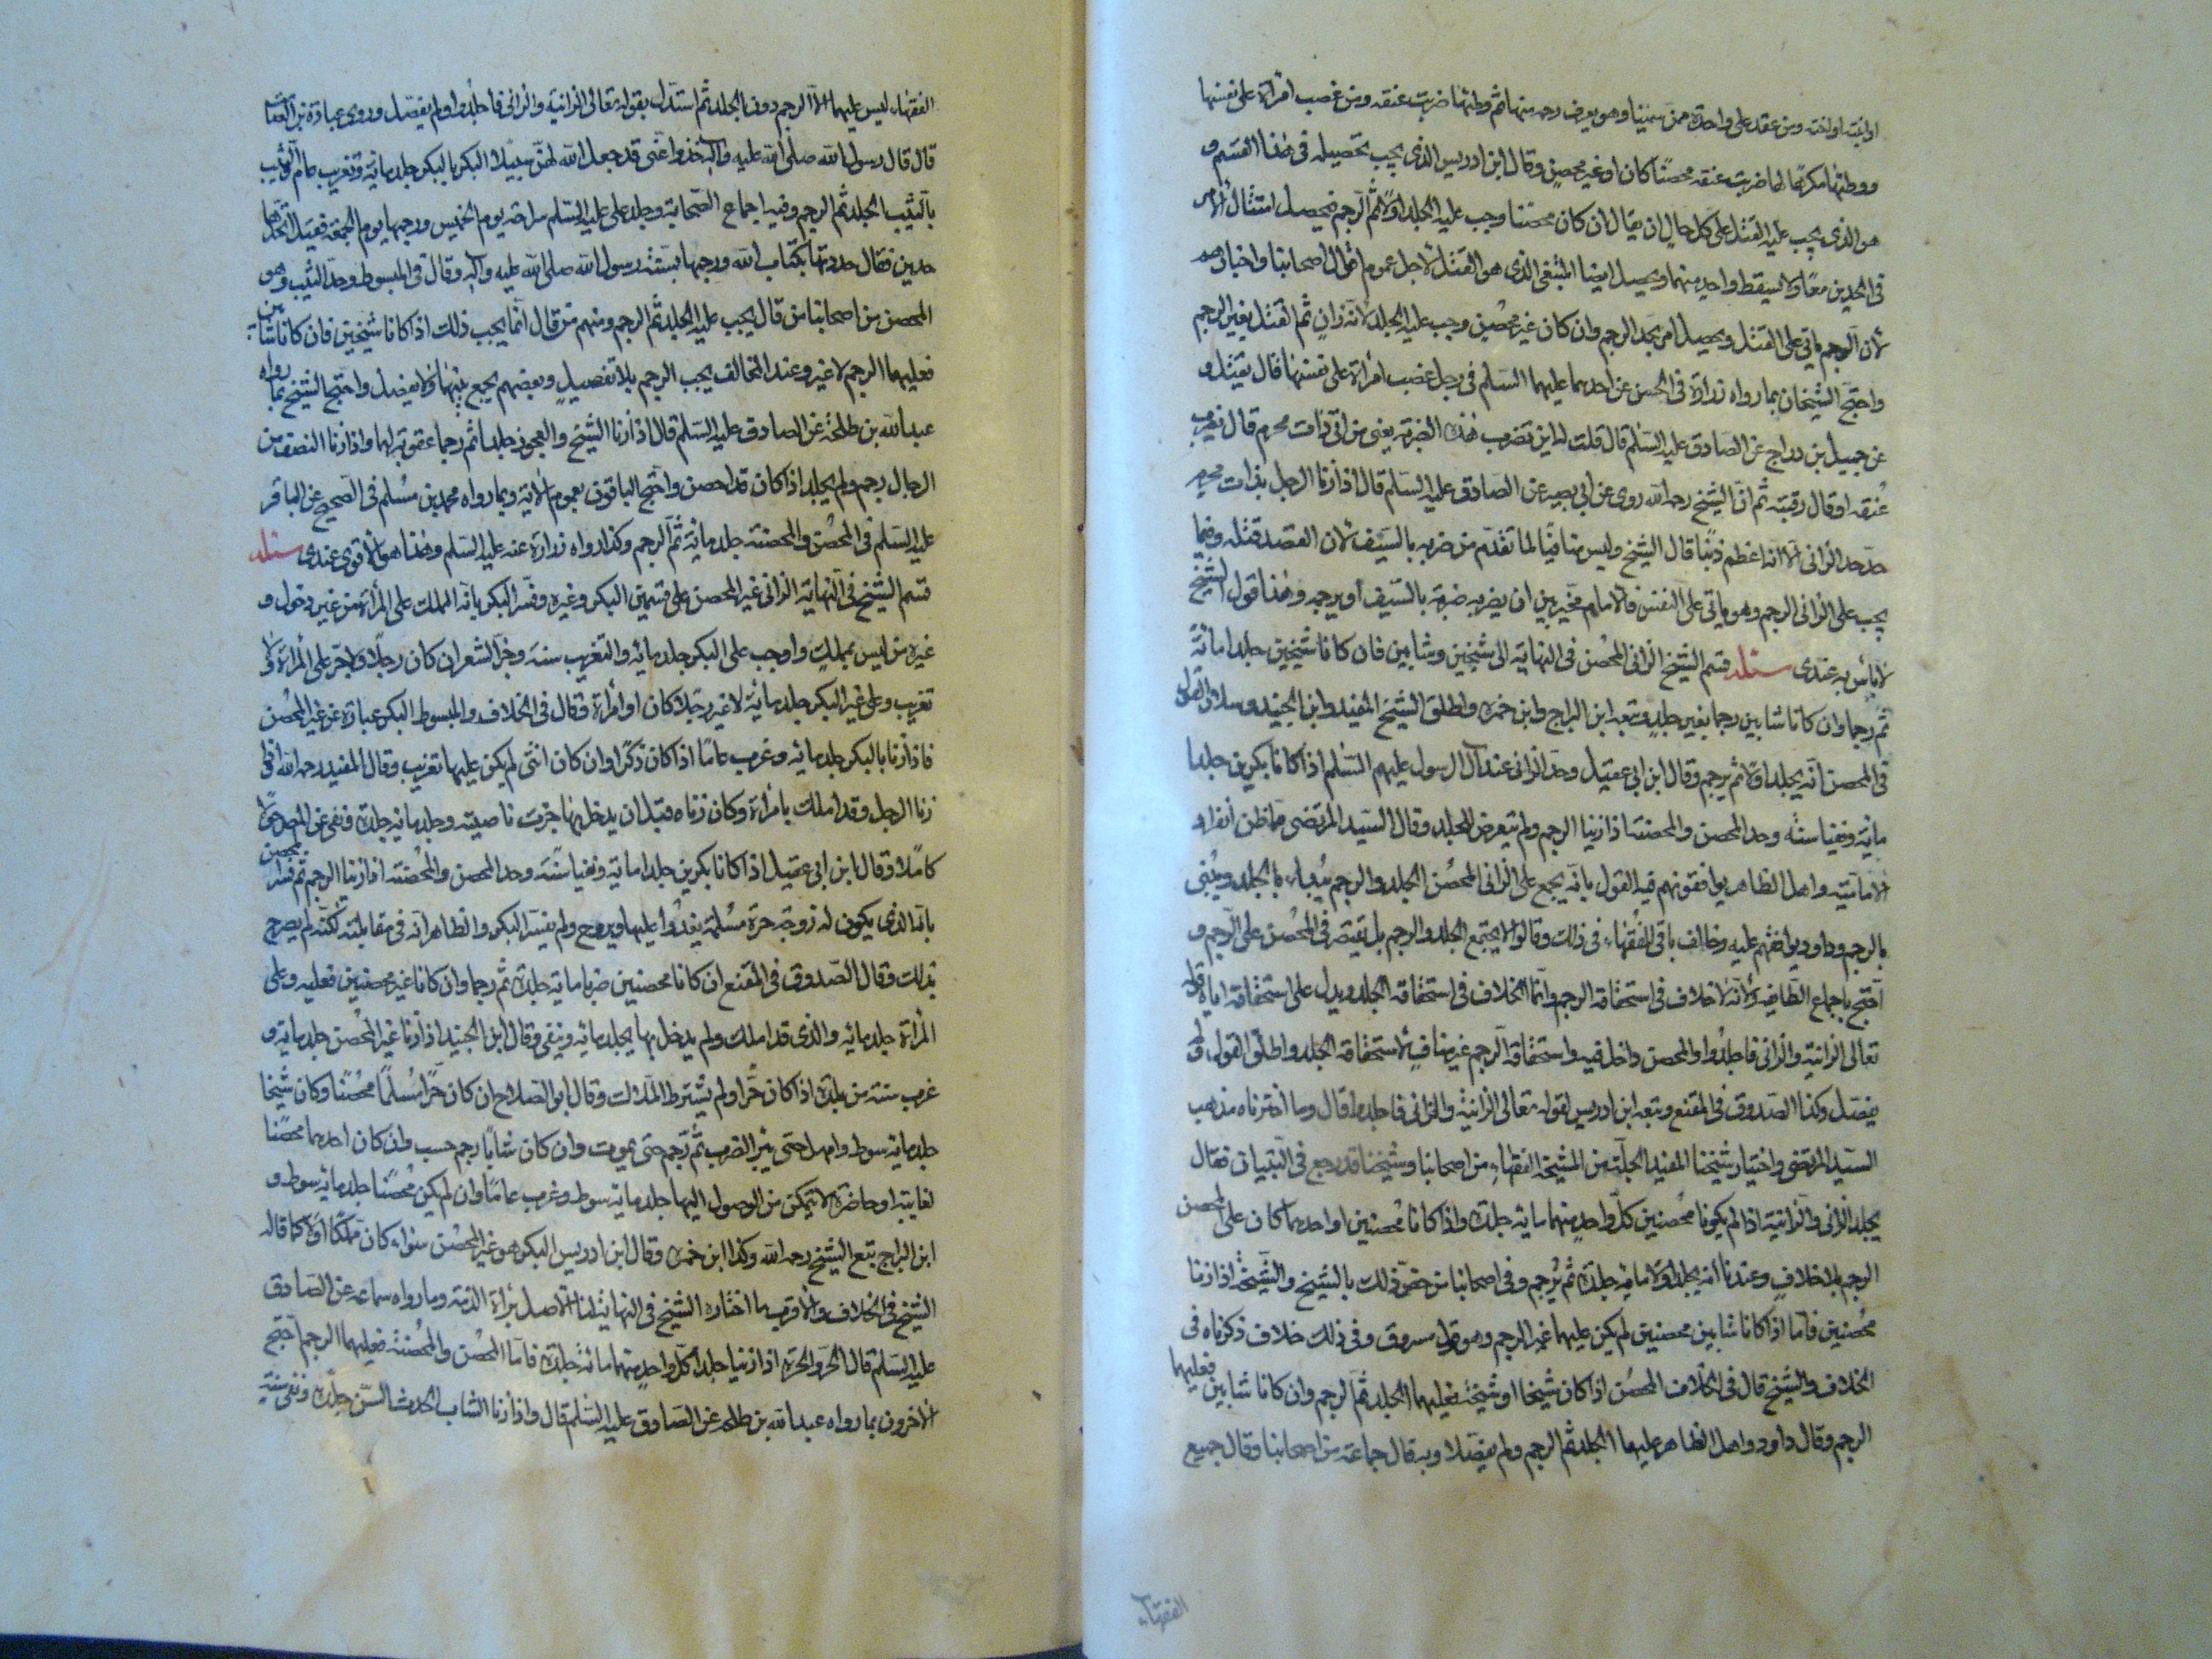 او ابنته او اخته ومن عقد على واحدة ممن سمينا وهو يعرف رحمه منها ثم وطئها ضربت عنقه ومن غصب امرأة على نفسها
ووطئها مكرها لها ضربت عنقه محصنا كان او غير محصن وقال ابن ادريس الذى يجب تحصيله فى هذا القسم و
هو الذى يجب عليه القتل على كل حال ان يقال ان كان محصنا وجب عليه الجلد اولا ثم الرجم فيحصل امتثال الامر
فى الحدين معا ولا يسقط واحد منهما ويحصل ايضا المبتغى الذى هو القتل لاجل عموم اقوال اصحابنا واخبارهم
لان الرجم ياتى على القتل ويحصل امر بحد الرجم وان كان غير محصن وجب عليه الجلد لانه زان ثم القتل بغير الرجم
واحتج الشيخان بما رواه زرارة فى الحسن عن احدهما عليهما السلم فى رجل غصب امرأة على نفسها قال يقتل و
عن جميل بن دراج عن الصادق عليه السلم قال قلت له اين تضرب هذه الضربة يعنى من اتى ذات محرم قال يضرب
عنقه او قال رقبته ثم ان الشيخ رحمه الله روى عن ابى بصير عن الصادق عليه السلم قال اذا زنا الرجل بذات محرم
حد حد الزانى الا انه اعظم ذنبا قال الشيخ وليس منافيا لما تقدم من ضربه بالسيف لان القصد قتله وفيما
يجب على الزانى الرجم وهو ياتى على النفس فالامام مخير بين ان يضربه ضربة بالسيف او يرجمه وهذا قول الشيخ
لا باس به عندى مسئله قسم الشيخ الزانى المحصن فى النهاية الى شيخين وشابين فان كانا شيخين جلدا مائة
ثم رجما وان كانا شابين رجما بغير جلد وتبعه ابن البراج وابن حمزه واطلق الشيخ المفيد وابن الجنيد وسلار القول
فى المحصن انه يجلد اولا ثم يرجم وقال ابن ابى عقيل وحد الزانى عند آل الرسول عليهم السلم اذا كانا بكرين جلدا
مائة ونفيا سنة وحد المحصن والمحصنة اذا زنيا الرجم ولم يتعرض للجلد وقال السيد المرتضى مما ظن انفراد
الامامية واهل الظاهر يوافقونهم فيه القول بانه يجمع على الزانى المحصن الجلد والرجم يبدأ بالجلد ويثنى
بالرجم وداود يوافقهم عليه وخالف باقى الفقهاء فى ذلك وقالوا لا يجتمع الجلد والرجم بل يقتصر فى المحصن على الرجم و
احتج باجماع الطايفه ولانه لا خلاف فى استحقاقه الرجم وانما الخلاف فى استحقاقه الجلد ويدل على استحقاقه اياه قوله
تعالى الزانية والزانى فاجلدوا والمحصن داخل فيه واستحقاقه الرجم غير مناف لاستحقاقه الجلد واطلق القول ولم
يفصل وكذا الصدوق فى المقنع وتبعه ابن ادريس لقوله تعالى الزانية والزانى فاجلدوا قال وما اخترناه مذهب
السيد المرتضى واختيار شيخنا المفيد الجلة من المشيخة الفقهاء من اصحابنا وشيخنا قد رجع فى التبيان فقال
يجلد الزانى والزانية اذا لم يكونا محصنين كل واحد منهما مائة جلدة واذا كانا محصنين او احدهما كان على المحصن
الرجم بلا خلاف وعندنا انه يجلد اولا مائة جلدة ثم يرجم وفى اصحابنا من خص ذلك بالشيخ والشيخة اذا زنيا
محصنين فاما اذا كانا شابين محصنين لم يكن عليهما غير الرجم وهو قول مسروق وفى ذلك خلاف ذكرناه فى
الخلاف والشيخ قال فى الخلاف المحصن اذا كان شيخا او شيخة فعليهما الجلد ثم الرجم وان كانا شابين فعليهما
الرجم وقال داود واهل الظاهر عليهما الجلد ثم الرجم ولم يفصلا وبه قال جماعة من اصحابنا وقال جميع
الفقهاء
الفقهاء ليس عليهما الا الرجم دون الجلد ثم استدل بقوله تعالى الزانية والزانى فاجلدوا ولم يفصل وروى عبادة بن الصامت
قال قال رسول الله صلى الله عليه وآله خذوا عنى قد جعل الله لهن سبيلا البكر بالبكر جلد مائة وتغريب عام والثيب
بالثيب الجلد ثم الرجم وفيه اجماع الصحابة وجلد على عليه السلم سراحه يوم الخميس ورجمها يوم الجمعة فقيل له تحدها
حدين فقال حددتها بكتاب الله ورجمتها بسنة رسول الله صلى الله عليه وآله وقال فى المبسوط وحد الثيب وهو
المحصن من اصحابنا من قال يجب عليه الجلد ثم الرجم ومنهم من قال انما يجب ذلك اذا كانا شيخين فان كانا شابين
فعليهما الرجم لا غير وعند المخالف يجب الرجم بلا تفصيل وبعضهم يجمع بينهما ولا يفصل واحتج الشيخ بما رواه
عبد الله بن طلحة عن الصادق عليه السلم قال اذا زنا الشيخ والعجوز جلدا ثم رجما عقوبة لهما واذا زنا النصف من
الرجال رجم ولم يجلد اذا كان قد احصن واحتج الباقون بعموم الاية وبما رواه محمد بن مسلم فى الصحيح عن الباقر
عليه السلم فى المحصن والمحصنة جلد مائة ثم الرجم وكذا رواه زرارة عنه عليه السلم وهذا هو الاقوى عندى مسئله
قسم الشيخ فى النهاية الزانى غير المحصن على قسمين البكر وغيره وفسر البكر بانه المملك على المرأة من غير دخول و
غيره من ليس بمملك واوجب على البكر جلد مائه والتغريب سنة وجز الشعر ان كان رجلا ولا جز على المرأة ولا
تغريب وعلى غير البكر جلد مائة لا غير رجلا كان او امرأة وقال فى الخلاف والمبسوط البكر عبارة عن غير المحصن
فاذا زنا بالبكر جلد مائه وغرب عاما اذا كان ذكرا وان كان انثى لم يكن عليها تغريب وقال المفيد رحمه الله اذا
زنا الرجل وقد املك بامرأة وكان زناه قبل ان يدخل بها جزت ناصيته وجلد مائة جلدة ونفى عن المصر حولا
كاملا وقال ابن ابى عقيل اذا كانا بكرين جلدا مائة ونفيا سنة وحد المحصن والمحصنة اذا زنيا الرجم ثم فسر المحصن
بانه الذى يكون له زوجة حرة مسلمة يغدوا اليها ويروح ولم يفسر البكر والظاهر انه فى مقابلته لكنه لم يصرح
بذلك وقال الصدوق فى المقنع ان كانا محصنين ضربا مائة جلدة ثم رجما وان كانا غير محصنين فعليه وعلى
المرأة جلد مائه والذى قد املك ولم يدخل بها يجلد مائه وينفى وقال ابن الجنيد اذا زنا غير المحصن جلد مائة و
غرب سنة من بلده اذا كان حرا ولم يشترط الملاك وقال ابو الصلاح ان كان حرا مسلما محصنا وكان شيخا
جلد مائة سوط وامهل حتى يبرأ الضرب ثم رجم حتى يموت وان كان شابا رجم حسب وان كان احدهما محصنا
لغايبة او حاضرة لا يتمكن من الوصول اليها جلد مائة سوط وغرب عاما وان لم يكن محصنا جلد مائه سوط و
ابن البراج تبع الشيخ رحمه الله وكذا ابن حمزه وقال ابن ادريس البكر هو غير المحصن سواء كان مملكا او لا كما قاله
الشيخ فى الخلاف والاقرب ما اختاره الشيخ فى النهاية لنا الاصل براءة الذمة وما رواه سماعه عن الصادق
عليه السلم قال الحر والحرة اذا زنيا جلد كل واحد منهما مائة جلدة فاما المحصن والمحصنة فعليهما الرجم احتج
الاخرون بما رواه عبد الله بن طلحه عن الصادق عليه السلم قال واذا زنا الشاب الحدث السن جلد ونفى سنة